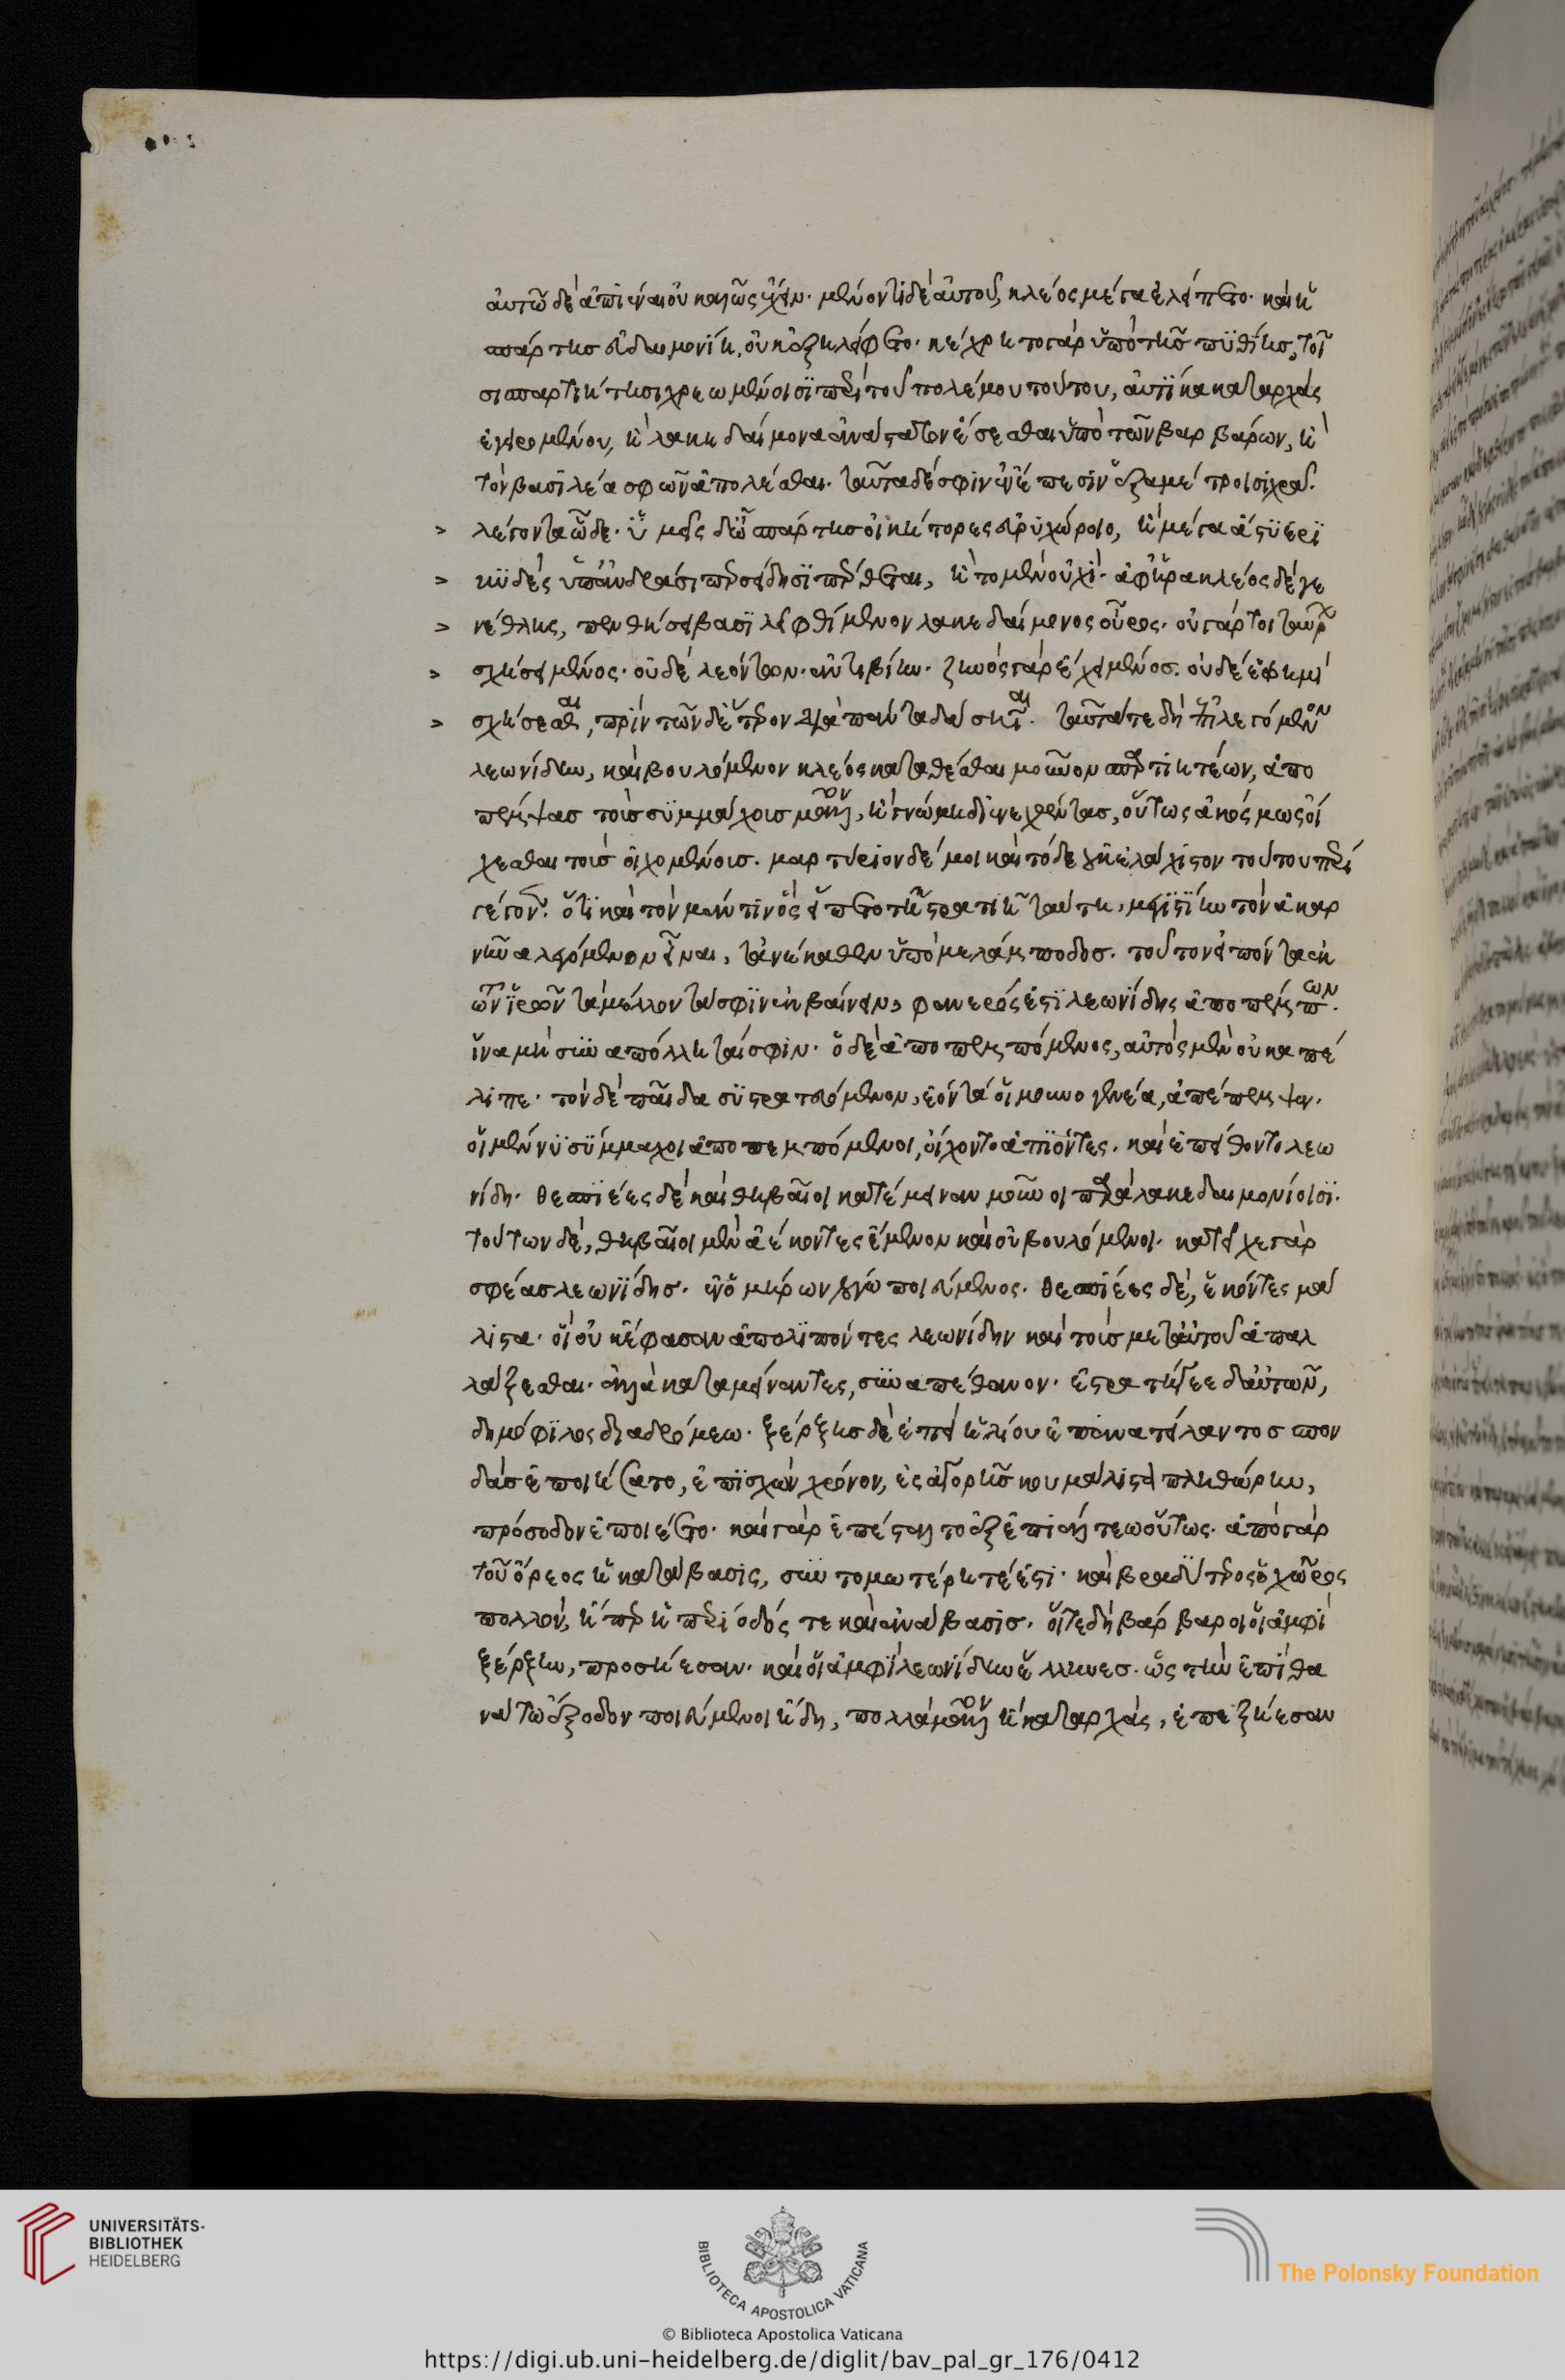 αὐτῶ δὲ ἀπιέναι οὐ καλῶς ἔχειν· μένοντι δὲ αὐτοῦ, κλέος μέγα ἐλείπετο· καὶ ἡ
σπάρτης εὐδαιμονίη, οὐκ ἐξηλείφετο· κέχρητο γὰρ ὑπὸ τῆς πυθίης, τοῖ
σι σπαρτιήτησι χρεωμένοισι περὶ τοῦ πολέμου τούτου, αὐτίκα καταρχὰς
ἐγειρομένου, ἢ λακεδαίμονα ἀνάστατον ἔσεσθαι ὑπὸ τῶν βαρβάρων, ἢ
τὸν βασιλέα σφῶν ἀπολέσθαι. ταῦτα δέ σφιν ἐν ἔπεσιν ἑξαμέτροισι χρᾶ.
> λέγοντα ὧδε· ὑμεῖς δ' ὦ σπάρτης οἰκήτορες εὐρυχώροιο, ἢ μέγα ἄστυ ἐρι
> κυδὲς ὑπ' ἀνδράσι περσείδησι πέρθεται, ἢ τὸ μὲν οὐχὶ· ἀφ' ἡρακλέος δὲ γε
> νέθλης, πενθήσει βασιλεῖ φθίμενον λακεδαίμονος οὖρος· οὐ γάρ τοι ταύρ
> σχήσει μένος· οὐδὲ λεόντων· ἀντιβίην· ζηνὸς γὰρ ἔχει μένος· οὐδέ ἑ φημὶ
> σχήσεσθαι, πρὶν τῶνδ' ἕτερον διὰ πάντα δάσηται. ταῦτά τε δὴ ἐπιλεγόμενον
λεωνίδην, καὶ βουλόμενον κλέος καταθέσθαι μοῦνον σπαρτιητέων, ἀπο
πέμψαι τοὺς συμμάχους μᾶλλον, ἢ γνώμη διενεχθέντας, οὕτως ἀκόσμως οἴ
χεσθαι τοὺς οἰχομένους. μαρτύριον δέ μοι καὶ τόδε οὐκ ἐλάχιστον τούτου περὶ
γέγονε· ὅτι καὶ τὸν μάντιν ὃς εἵπετο τῆ στρατιῆ ταύτη, μεγιστίην τὸν ἀκαρ
νῆνα λεγόμενον εἶναι, τἀνήκαθεν ὑπὸ μελάμποδος. τοῦτον εἰπόντα ἐκ
τῶν ἱερῶν τὰ μέλλοντα σφιν ἐκβαίνειν, φανερός ἐστι λεωνίδης ἀποπέμπων.
ἵνα μὴ συναπόλληταί σφιν· ὁ δὲ ἀποπεμπόμενος, αὐτὸς μὲν οὐκ ἀπέ
λιπε· τὸν δὲ παῖδα συστρατευόμενον, ἐόντα οἱ μουνογενέα, ἀπέπεμψε.
οἱ μέν νυ σύμμαχοι ἀποπεμπόμενοι, οἴχοντο ἀπιόντες. καὶ ἐπείθοντο λεω
νίδη· θεσπιέες δὲ καὶ θηβαῖοι κατέμειναν μοῦνοι παρὰ λακεδαιμονίοισι.
τούτων δὲ, θηβαῖοι μὲν ἀέκοντες ἔμενον καὶ οὐ βουλόμενοι· κατεῖχε γὰρ
σφέας λεωνίδης· ἐν ὁμήρων λόγω ποιεύμενος. θεσπιέες δὲ, ἑκόντες μά
λιστα· οἳ οὐκ ἔφασαν ἀπολιπόντες λεωνίδην καὶ τοὺς μετ' αὐτοῦ ἀπαλ
λάξεσθαι· ἀλλὰ καταμείναντες, συναπέθανον· ἐστρατήγεε δ' αὐτῶν,
δημόφιλος διαδρόμεω. ξέρξης δὲ ἐπεὶ ἡλίου ἐπανατείλαντος σπον
δὰς ἐποιήσατο, ἐπισχὼν χρόνον, ἐς ἀγορῆς κου μάλιστα πληθώρην,
πρόσοδον ἐποιέετο· καὶ γὰρ ἐπέσταλτο ἐξ ἐπιάλτεω οὕτως· ἀπὸ γὰρ
τοῦ ὄρεος ἡ κατάβασις, συντομωτέρη τέ ἐστι· καὶ βραδύτερος ὁ χῶρος
πολλὸν, ἤπερ ἡ περίοδός τε καὶ ἀνάβασις. οἵ τε δὴ βάρβαροι οἱ ἀμφὶ
ξέρξην, προσήεσαν· καὶ οἱ ἀμφὶ λεωνίδην ἕλληνες. ὡς τὴν ἐπὶ θα
νάτω ἔξοδον ποιεύμενοι ἤδη, πολλὰ μᾶλλον ἢ καταρχὰς, ἐπεξήεσαν
UNIVERSITÄTS-
BIBLIOTHEK
HEIDELBERG
BIBLIOTECA APOSTOLICA VATICANA
The Polonsky Foundation
© Biblioteca Apostolica Vaticana
https://digi.ub.uni-heidelberg.de/diglit/bav_pal_gr_176/0412